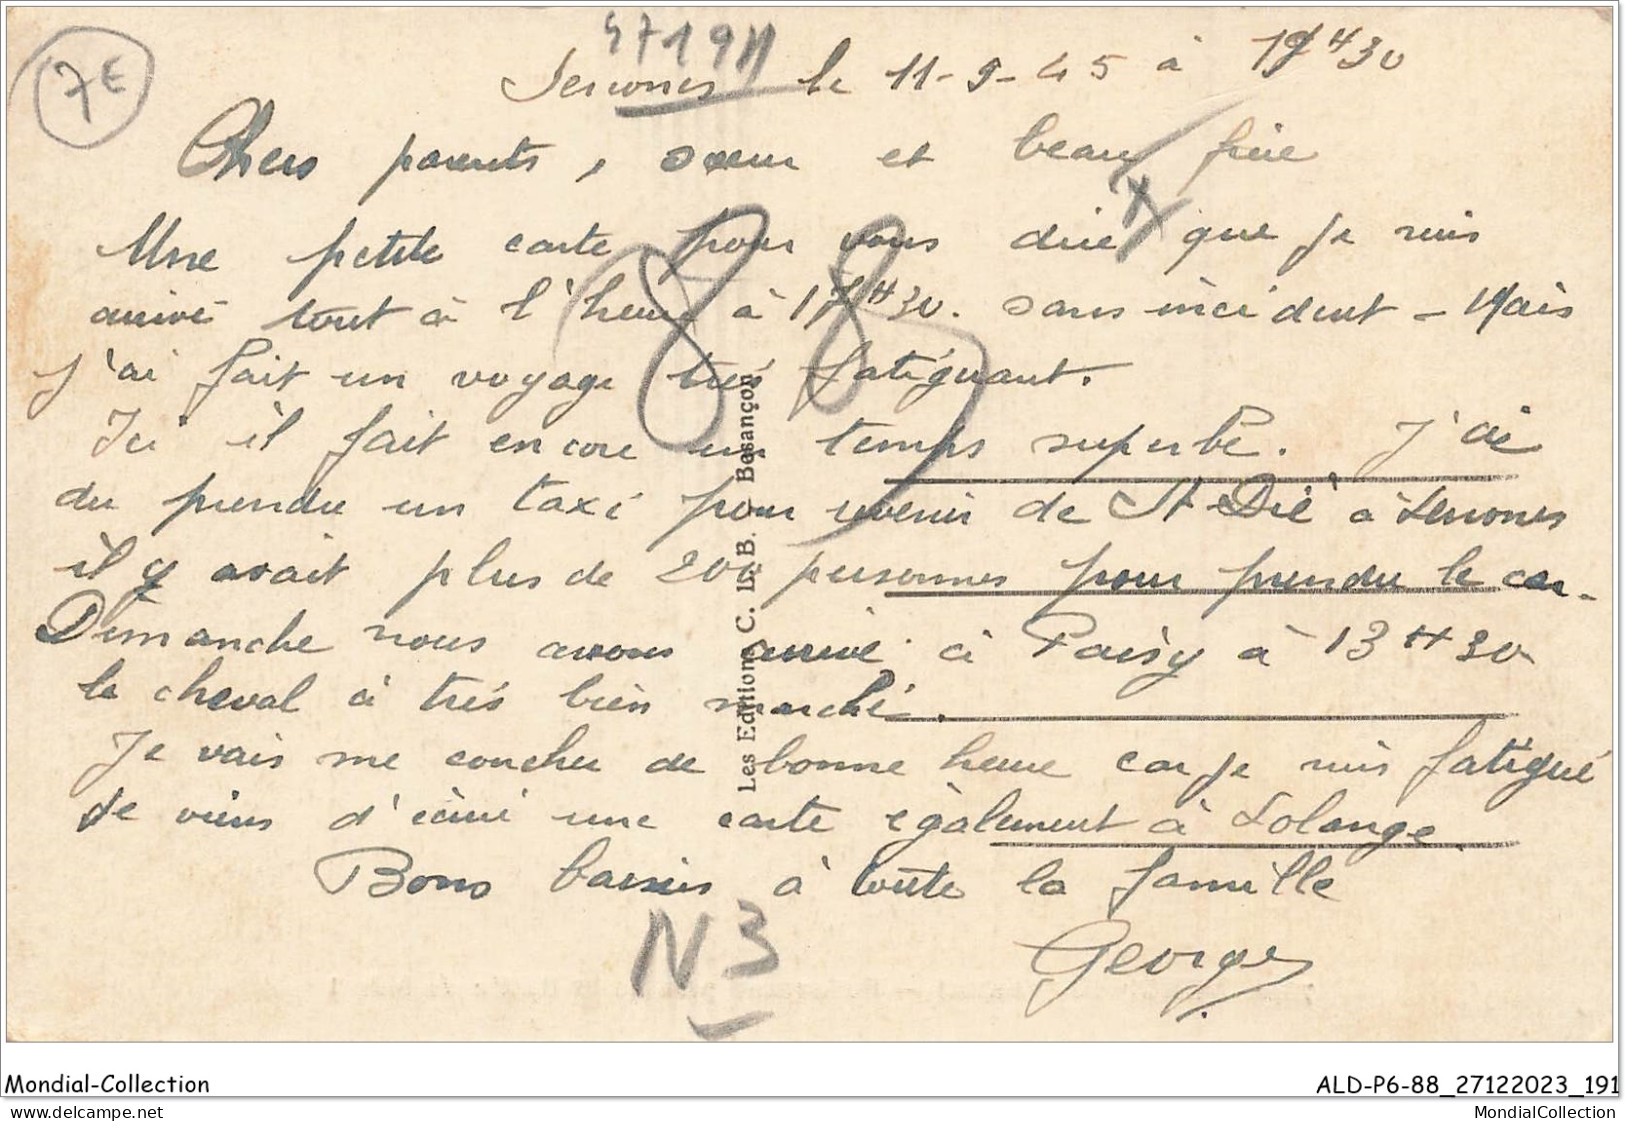 7€
47191
Senones le 11-9-45 à 19H30
Chers parents, sœur et beau frère
Une petite carte pour vous dire que je suis
arrivé tout à l'heure à 17H30. sans incident - Mais
j'ai fait un voyage très fatiguant.
Ici il fait encore un temps superbe. J'ai
du prendre un taxi pour revenir de St Dié à Senones
il y avait plus de 200 personnes pour prendre le car.
Dimanche nous avons arrivé à Paisy à 13H30
le cheval à très bien marché.
Je vais me coucher de bonne heure car je suis fatigué
Je viens d'écrire une carte également à Solange.
Bons baisers à toute la famille
Georges
88
N3
Les Editions C. L. B. Besançon
Mondial-Collection
ALD-P6-88_27122023_191
www.delcampe.net
MondialCollection